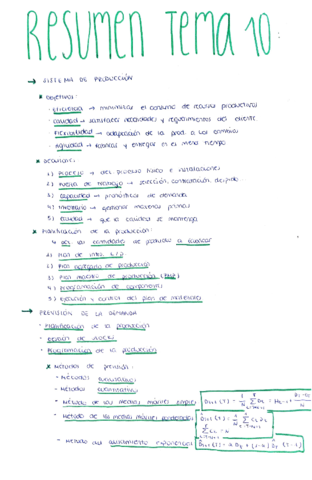 RESUMEN TEMA 10:
→ SISTEMA DE PRODUCCIÓN
* Objetivos:
· Eficiencia → minimizar el consumo de recursos productivos
· Calidad → satisfacer necesidades y requerimientos del cliente
· Flexibilidad → adaptación de la prod. a los cambios
· Agilidad → fabricar y entregar en el menor tiempo
* Decisiones:
1) Proceso → del proceso físico e instalaciones
2) → selección, contratación, despido
3) Capacidad → pronósticos de demanda
4) Inventario → gestionar materias primas
5) Calidad → que la calidad se mantenga
* Planificación de la producción:
las cantidades de producto a
1) Plan de
2) Plan agregado de producción
3) Plan maestro de producción
4) Programación de componentes
5) Ejecución y control del plan de materiales
→ PREVISIÓN DE LA DEMANDA
· Planificación de la producción
· Gestión de stocks
· Programación de la producción
* Métodos de previsión:
· Métodos cualitativos
· Métodos cuantitativos
· Método de las medias móviles simples
· Método de las medias móviles ponderadas
· Método del alisamiento exponencial